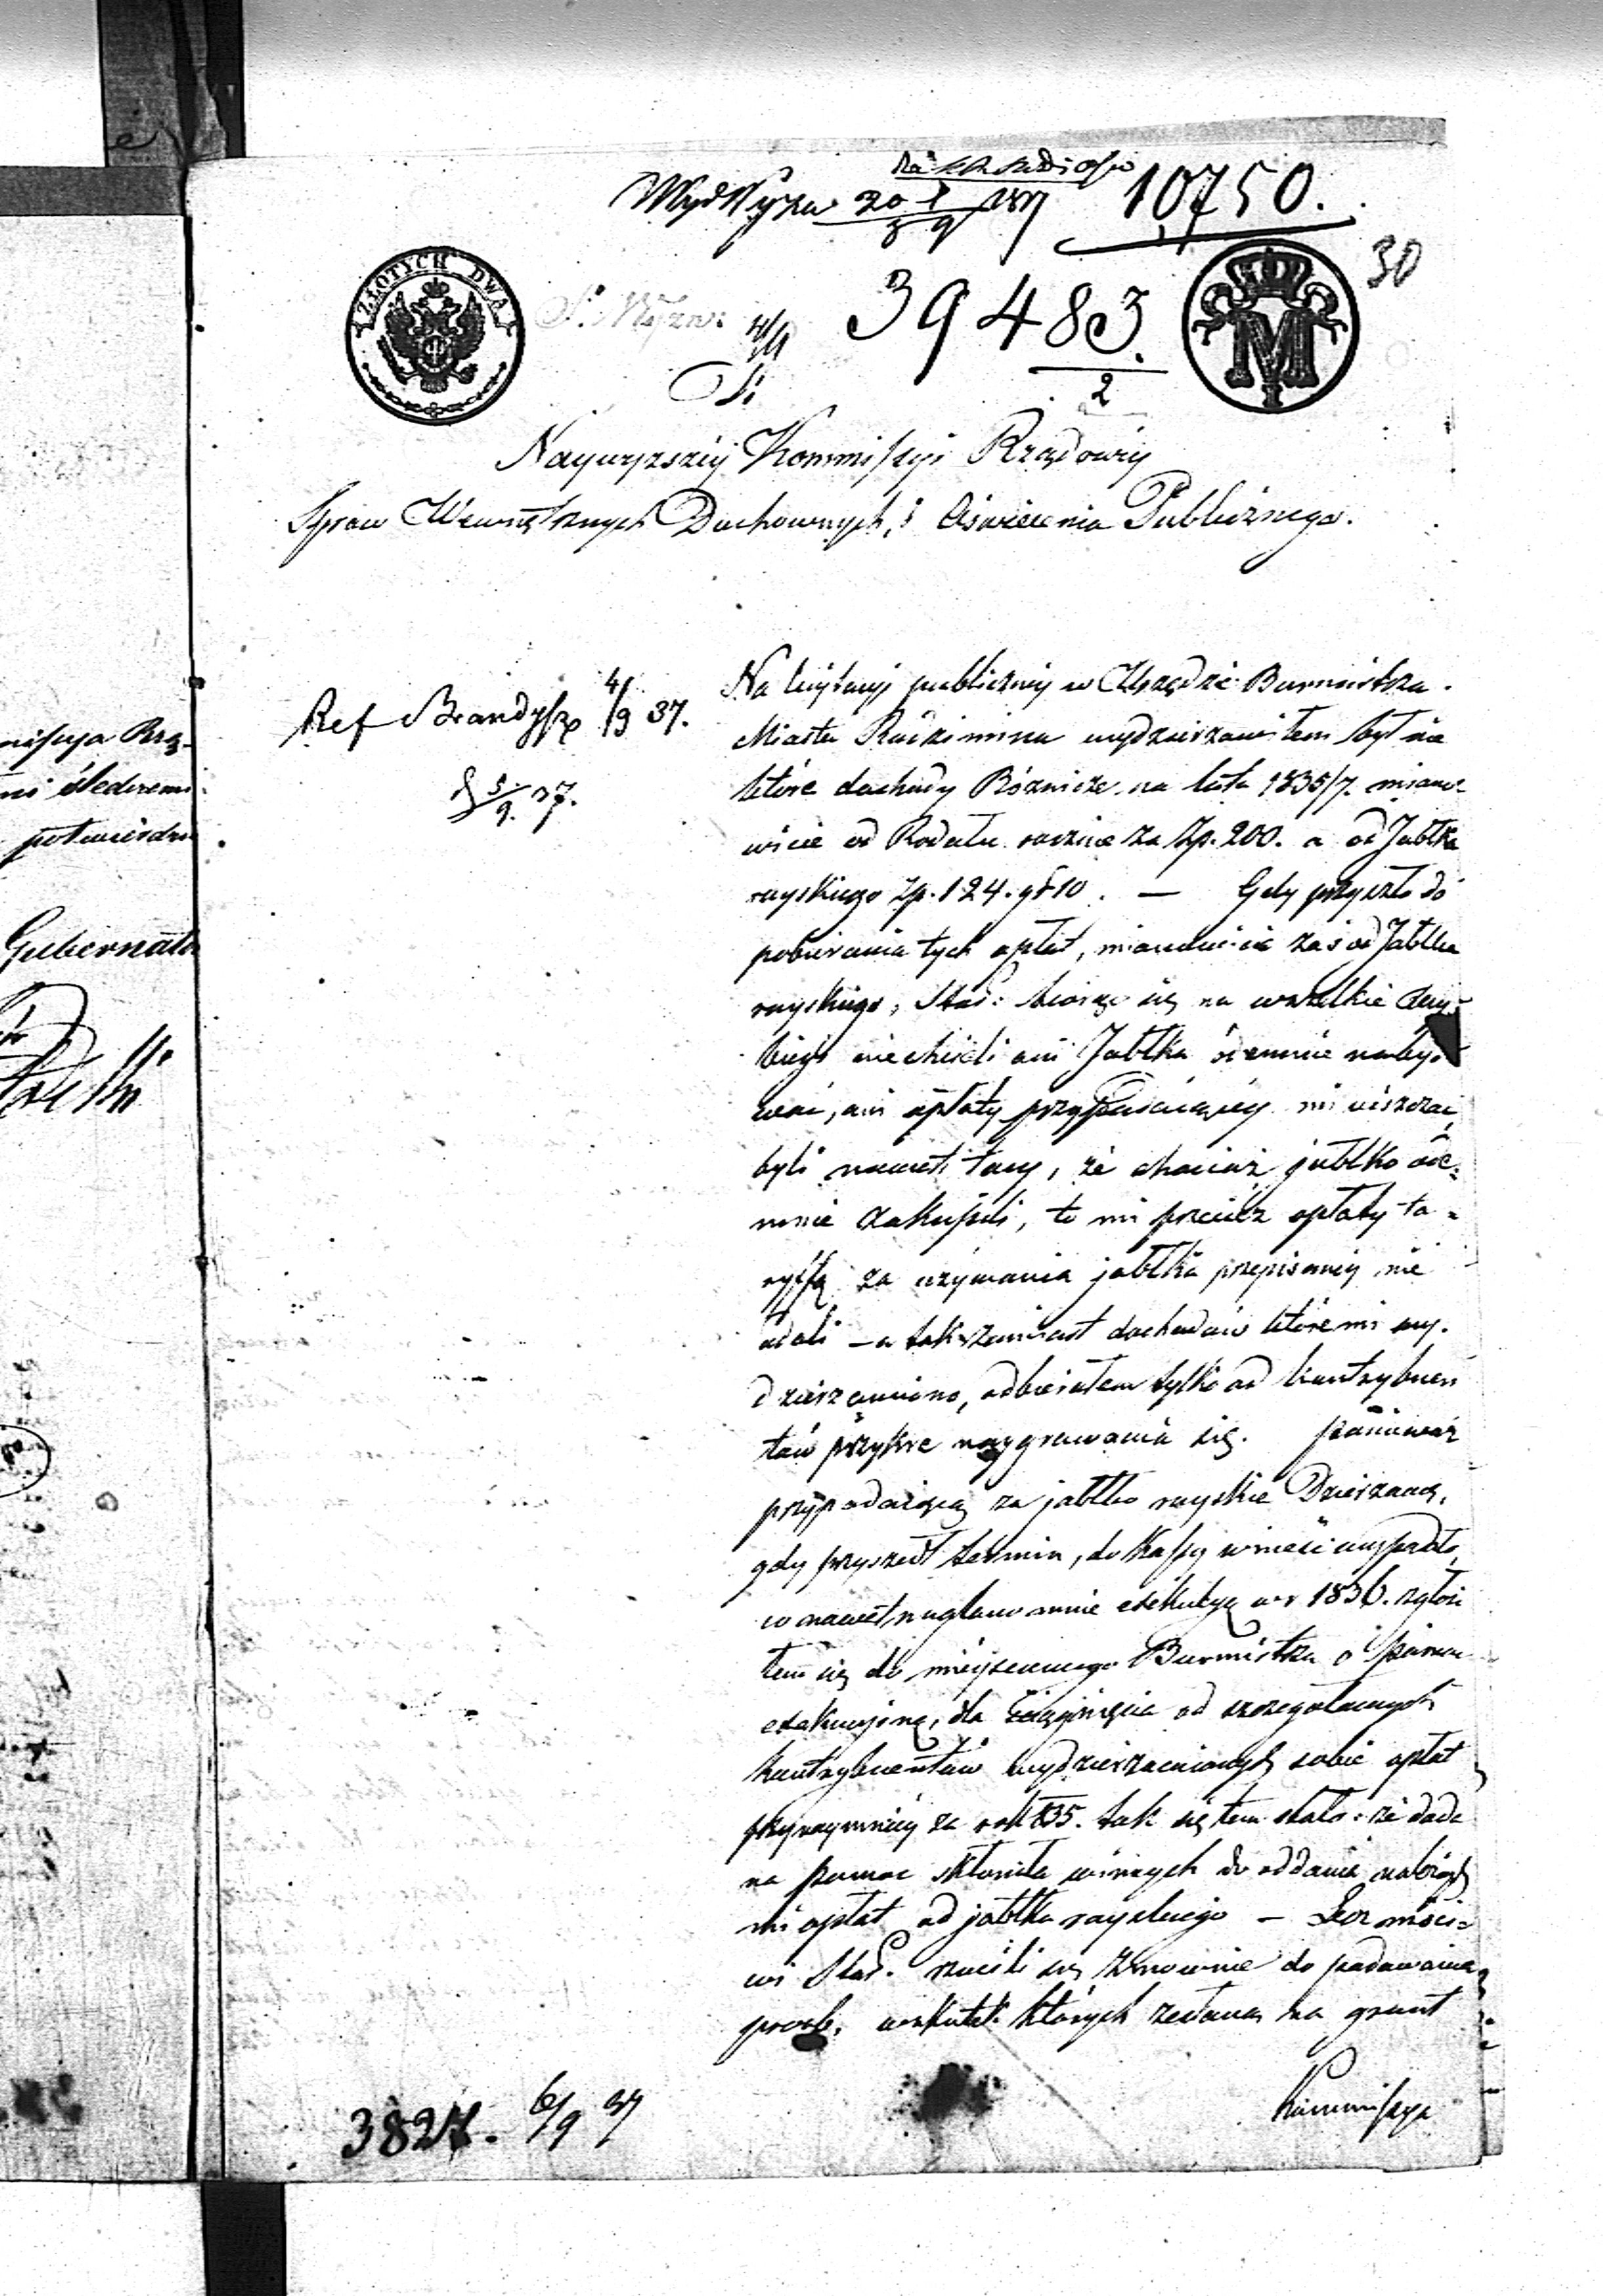 10750.
30
ZŁOTYCH DWA
39483.
2
Naywyższéy Kommissyi Rządowéy
Spraw Wewnętrznych Duchownych, i Oświecenia Publicznego.
Ref Brandysz 4/9 37.
5/9. 37.
Na licytacyi publiczney w Urzędzie Burmistrza
Miasta Radzimina wydzierzawiłem był nie
które dochody Bóżnicze na lata 1835/7. miano-
wicie od Rodału rocznie za Zp. 200. a od Jabłka
rayskiego Zp. 124. gr 10. — Gdy przyszło do
pobierania tych opłat, mianowicie zaś od Jabłka
rayskiego, Star: biorąc się na wszelkie wy-
biegi niechcieli ani Jabłka odemnie naby-
wać, ani opłaty przypadaiącéy mi uiszczać,
byli nawet tacy, że chociaż jabłko ode-
mnie zakupili, to mi przecież opłaty ta-
ryffą za używania jabłka przepisanéy nie
dali — a tak zamiast dochodów które mi wy-
dzierzawiono, odbierałem tylko od kontrybuen
tów przykre naygrawania się. ponieważ
przypadaiącą za jabłko rayskie Dzierzawę,
gdy przyszedł termin, do Kassy wnieść wypadło,
nawet naglano mnie exekucyą w r 1836. zgłosi
łem się do mieyscowego Burmistrza o pomoc
exekucyiną, dla ściągnięcia od szczegółowych
kontrybuentów wydzierzawionych sobie opłat
przynaymniéy za rok 1835. tak się tem stało: że doda
na pomoc skłoniła winnych do oddania należnych
mi opłat od jabłka rayskiego — Lecz mści-
wi Star. rzucili się znowu nie do podawania
prośb, wskutek których zesłana na grunt
Kommissya
3827. 6/9 37
Gubernator
potwierdze